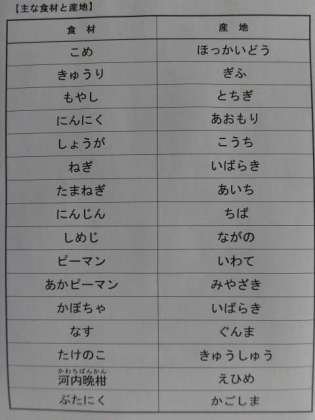 【主な食材と産地】
食 材 産 地
こめ ほっかいどう
きゅうり ぎふ
もやし とちぎ
にんにく あおもり
しょうが こうち
ねぎ いばらき
たまねぎ あいち
にんじん ちば
しめじ ながの
ピーマン いわて
あかピーマン みやざき
かぼちゃ いばらき
なす ぐんま
たけのこ きゅうしゅう
かわちばんかん
河内晩柑 えひめ
ぶたにく かごしま